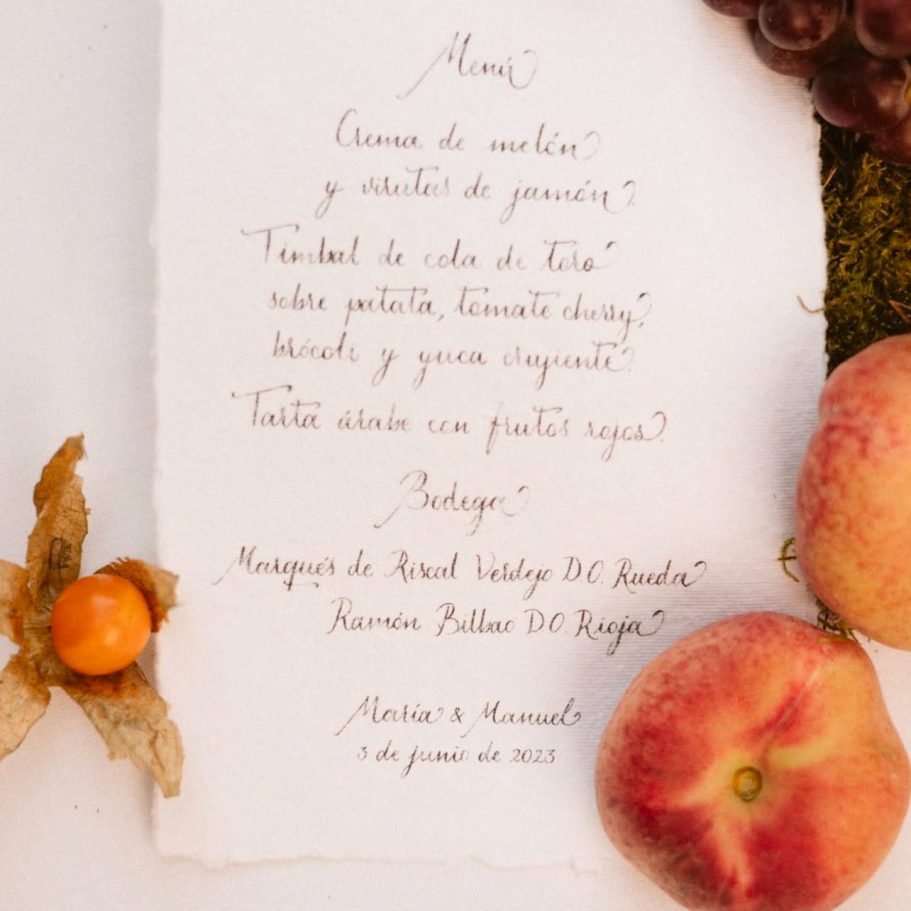 Menú
Crema de melón
y virutas de jamón.
Timbal de cola de toro
sobre patata, tomate cherry,
brócoli y yuca crujiente.
Tarta árabe con frutos rojos.
Bodega
Marqués de Riscal Verdejo D.O. Rueda
Ramón Bilbao D.O. Rioja
María & Manuel
3 de junio de 2023